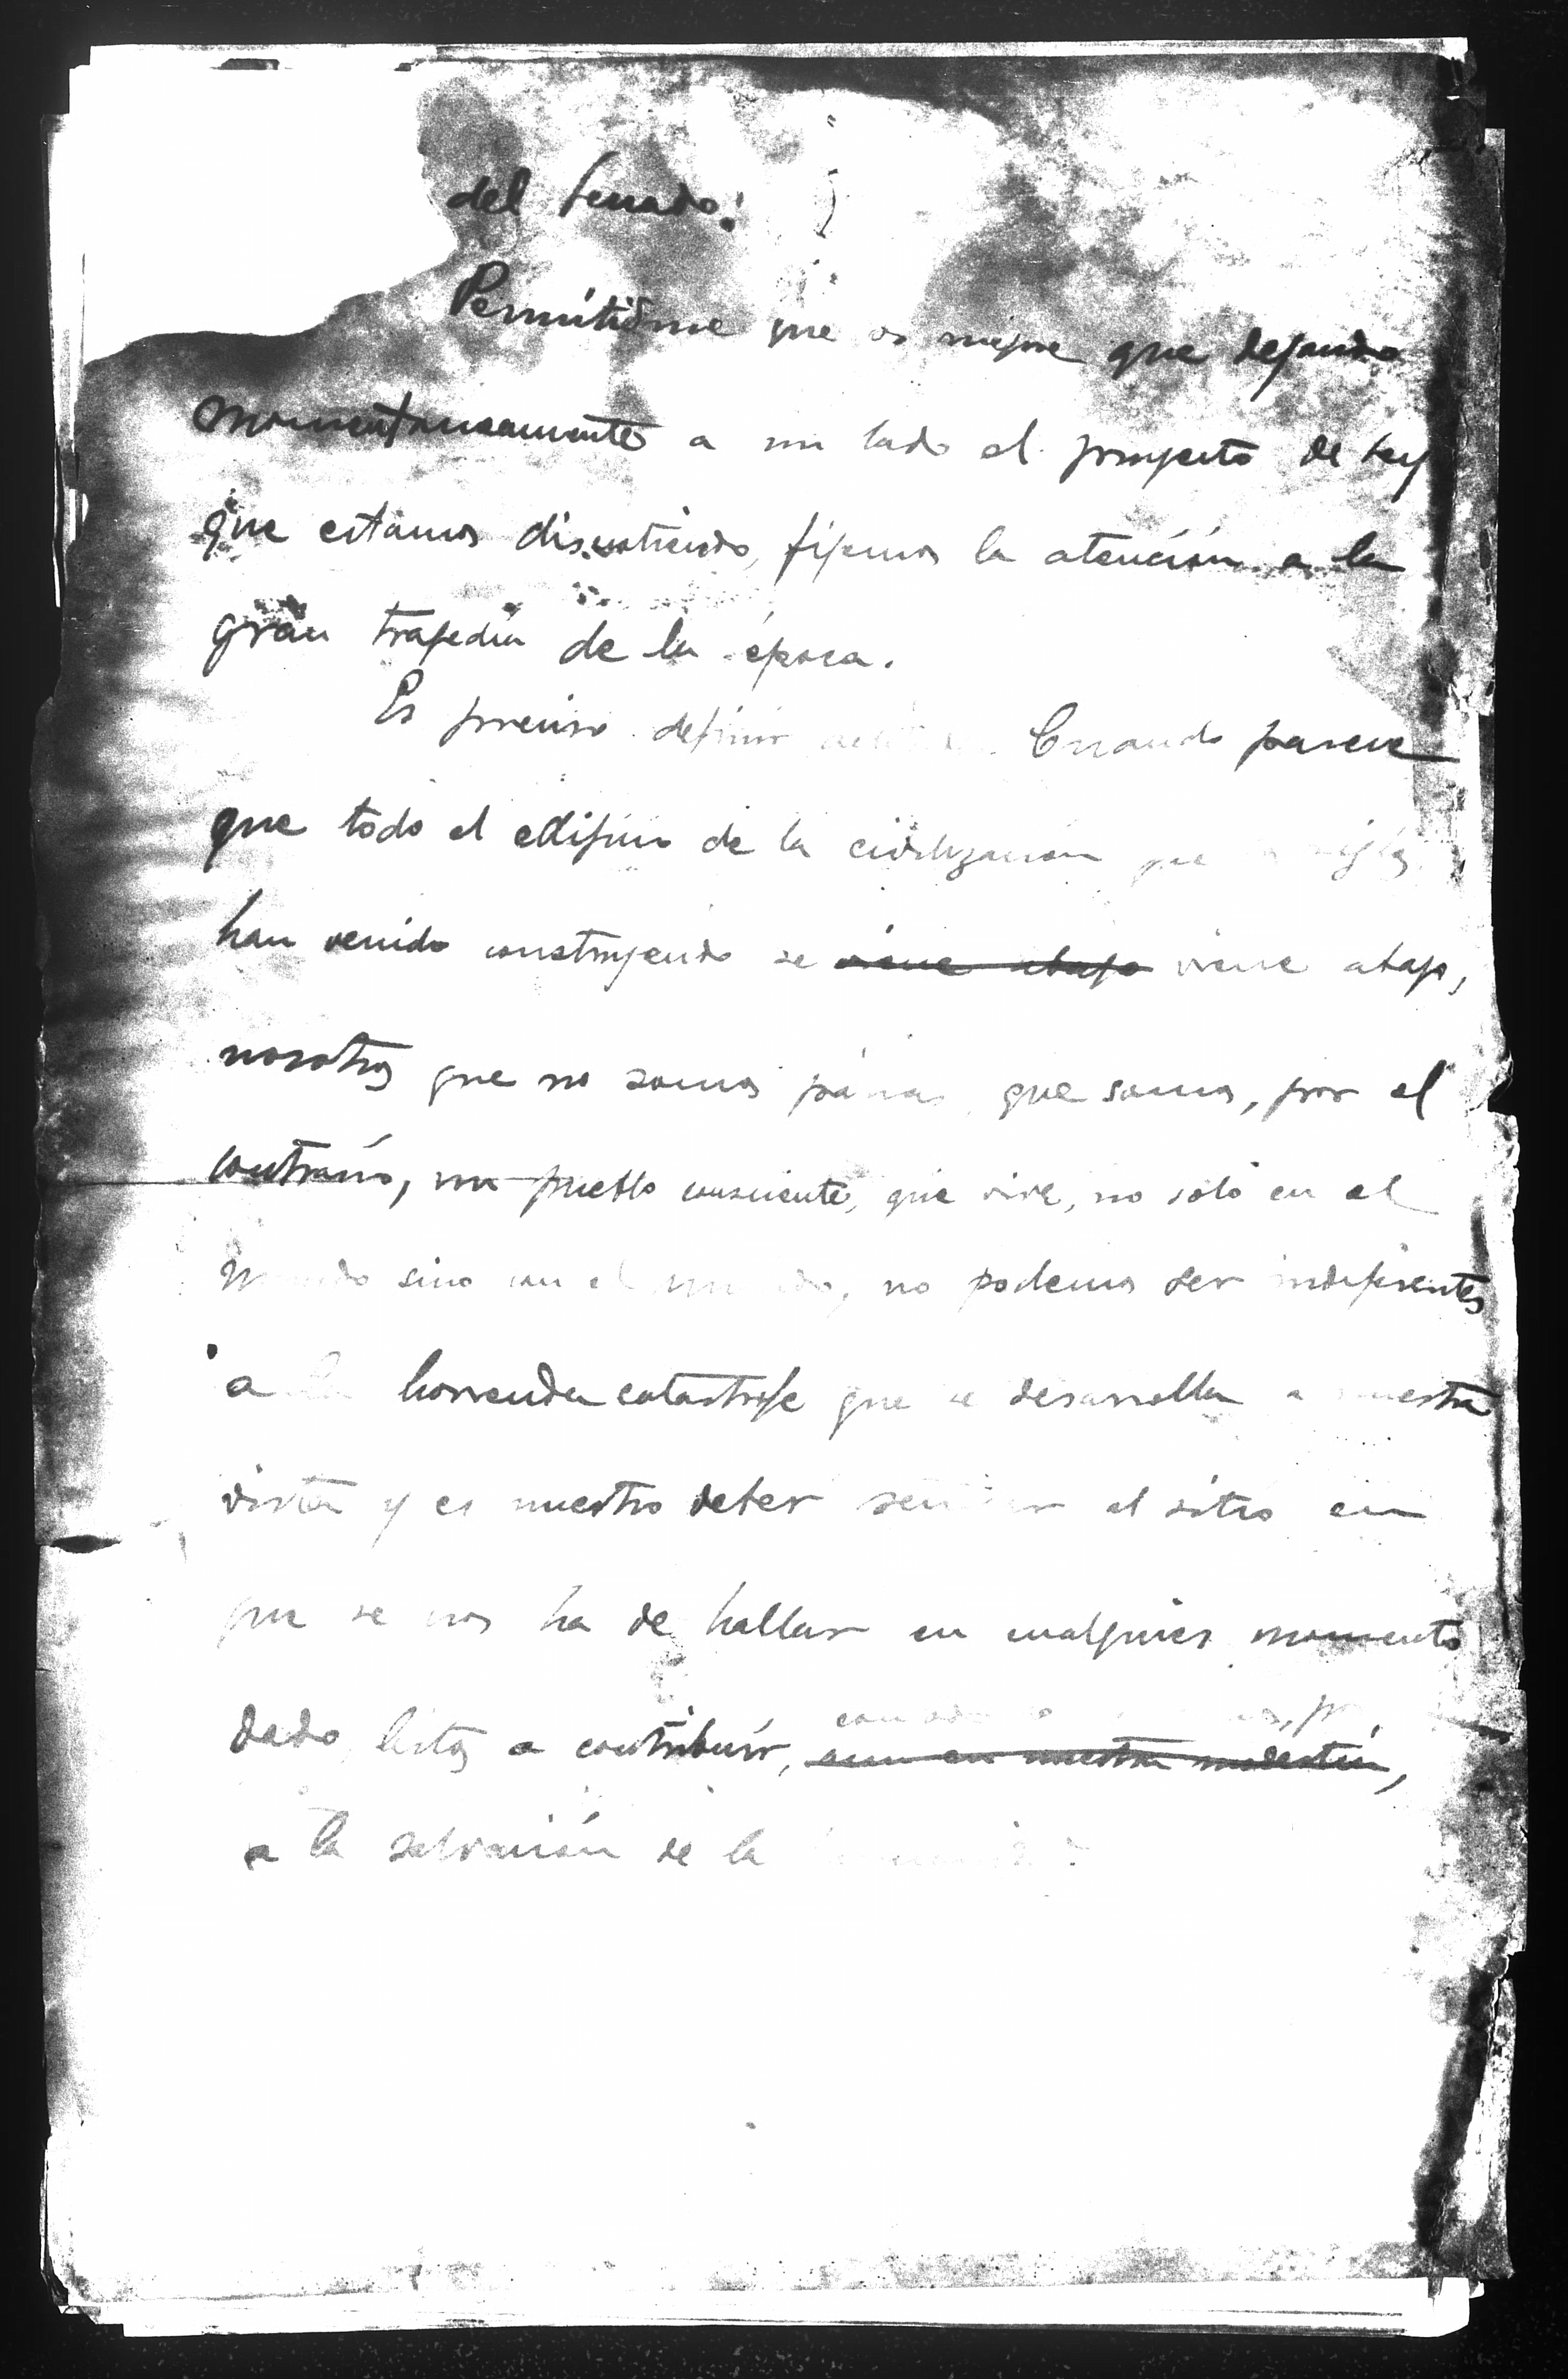 del Senado:
Permitidme que os ruegue que dejando
momentaneamente a un lado el proyecto de ley
que estamos discutiendo, fijemos la atención a la
gran tragedia de la época.
Es preciso definir Cuando parece
que todo el edificio de la civilización que siglos
han venido construyendo se viene abajo viene abajo,
nosotros que no somos parias, que somos, por el
contrario, un pueblo consciente, que vive, no sólo en el
mundo sino con el mundo, no podemos ser indiferentes
a la horrenda catástrofe que se desarrolla a nuestra
vista y es nuestro deber el sitio en
que se nos ha de hallar en cualquier momento
dado, listos a contribuir, aun en nuestra modestia,
a la salvación de la